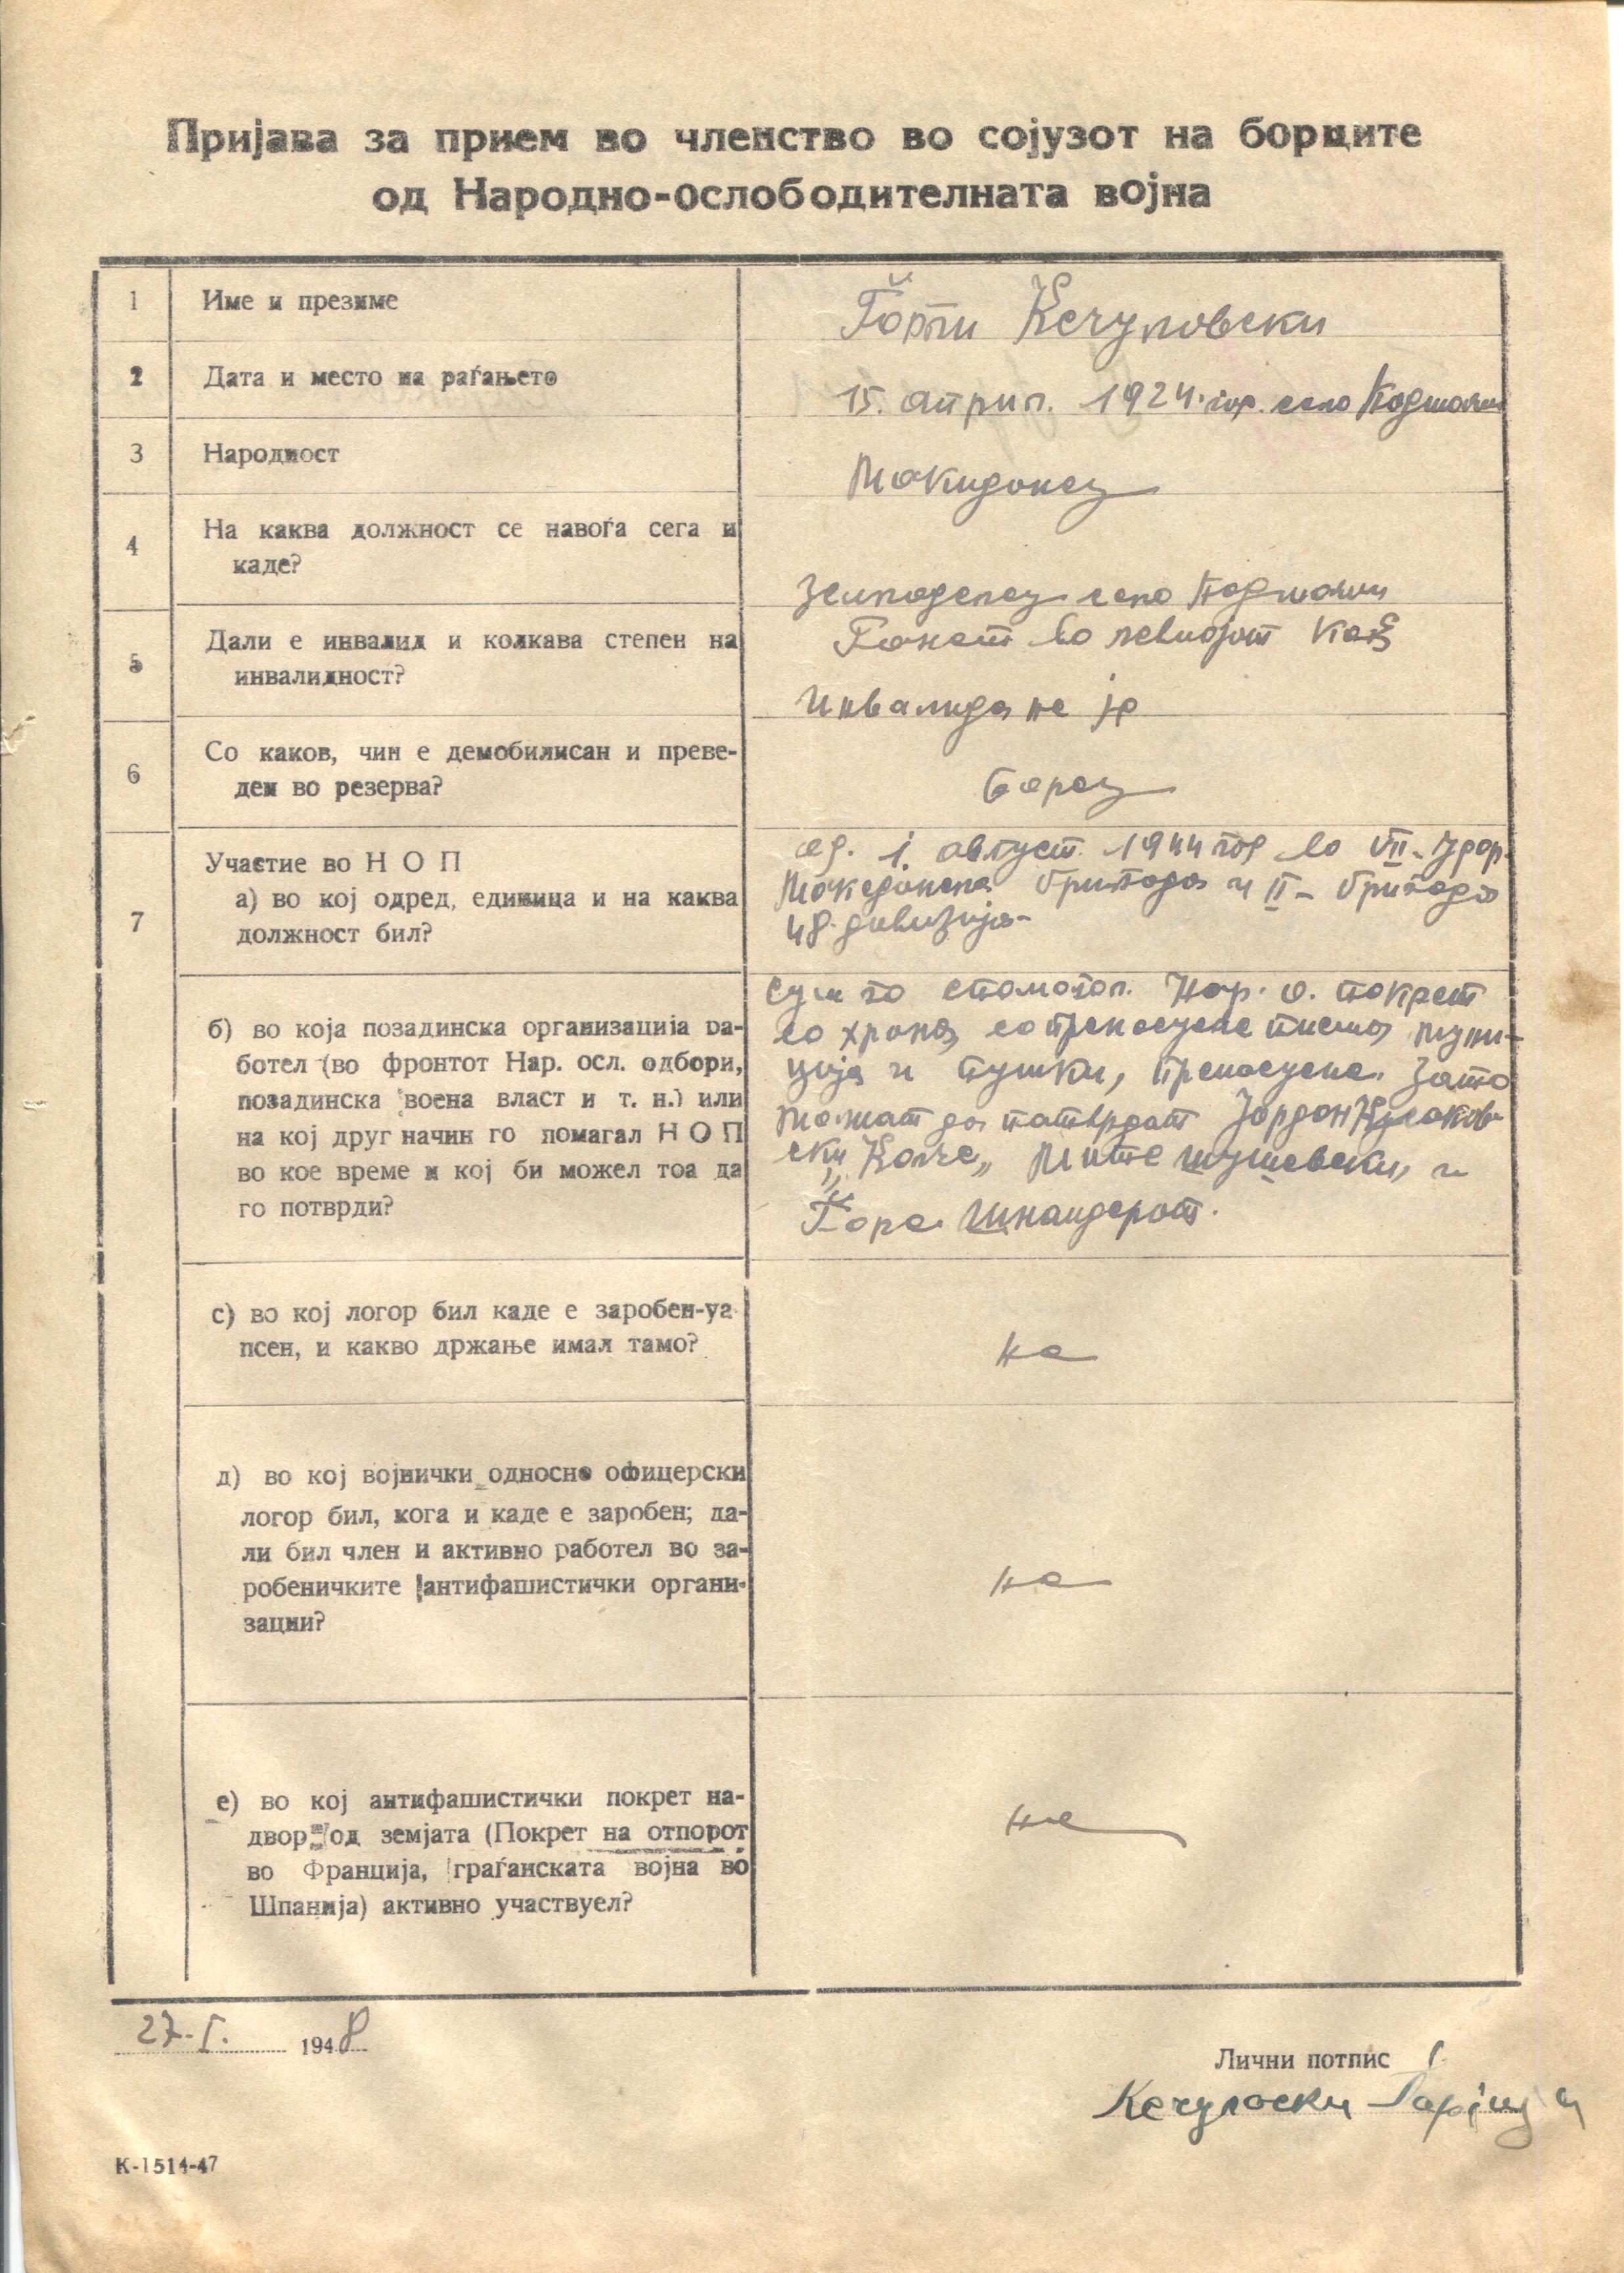 Пријава за прием во членство во сојузот на борците
од Народно-ослободителната војна
1 Име и презиме Ѓорги Кечуловски
2 Дата и место на раѓањето 15. април. 1924. год. село
3 Народност Македонец
4 На каква должност се навоѓа сега и
каде?
Земљоделец село
5 Дали е инвалид и колкава степен на
инвалидност?
Ранет во левиот
Инвалида не је
6 Со каков, чин е демобилисан и преве-
ден во резерва?
борец
7 Участие во Н О П
а) во кој одред, единица и на каква
должност бил?
од. 1. август. 1944 год во VII-Удар.
Македонска бригада и II- бригада
48. дивизија-
б) во која позадинска организација ра-
ботел (во фронтот Нар. осл. одбори,
позадинска воена власт и т. н.) или
на кој друг начин го помагал Н О П
во кое време и кој би можел тоа да
го потврди?
сум го спомогол. Нар. о. покрет
со храна, со пренесуене писма муни-
ција и пушки, пренесуене. Зато
можат да потврдат Јордан
ски, Колче„ Мите Шушевски, и
Ѓоре Шнајдерот.
с) во кој логор бил каде е заробен-уа
псен, и какво држање имал тамо?
не
д) во кој војнички односно офицерски
логор бил, кога и каде е заробен; да-
ли бил член и активно работел во за-
робеничките антифашистички органи-
зации?
не
е) во кој антифашистички покрет на-
двор од земјата (Покрет на отпорот
во Франција, граѓанската војна во
Шпанија) активно участвуел?
не
27-I. 1948
Лични потпис
Кечулоски
К-1514-47